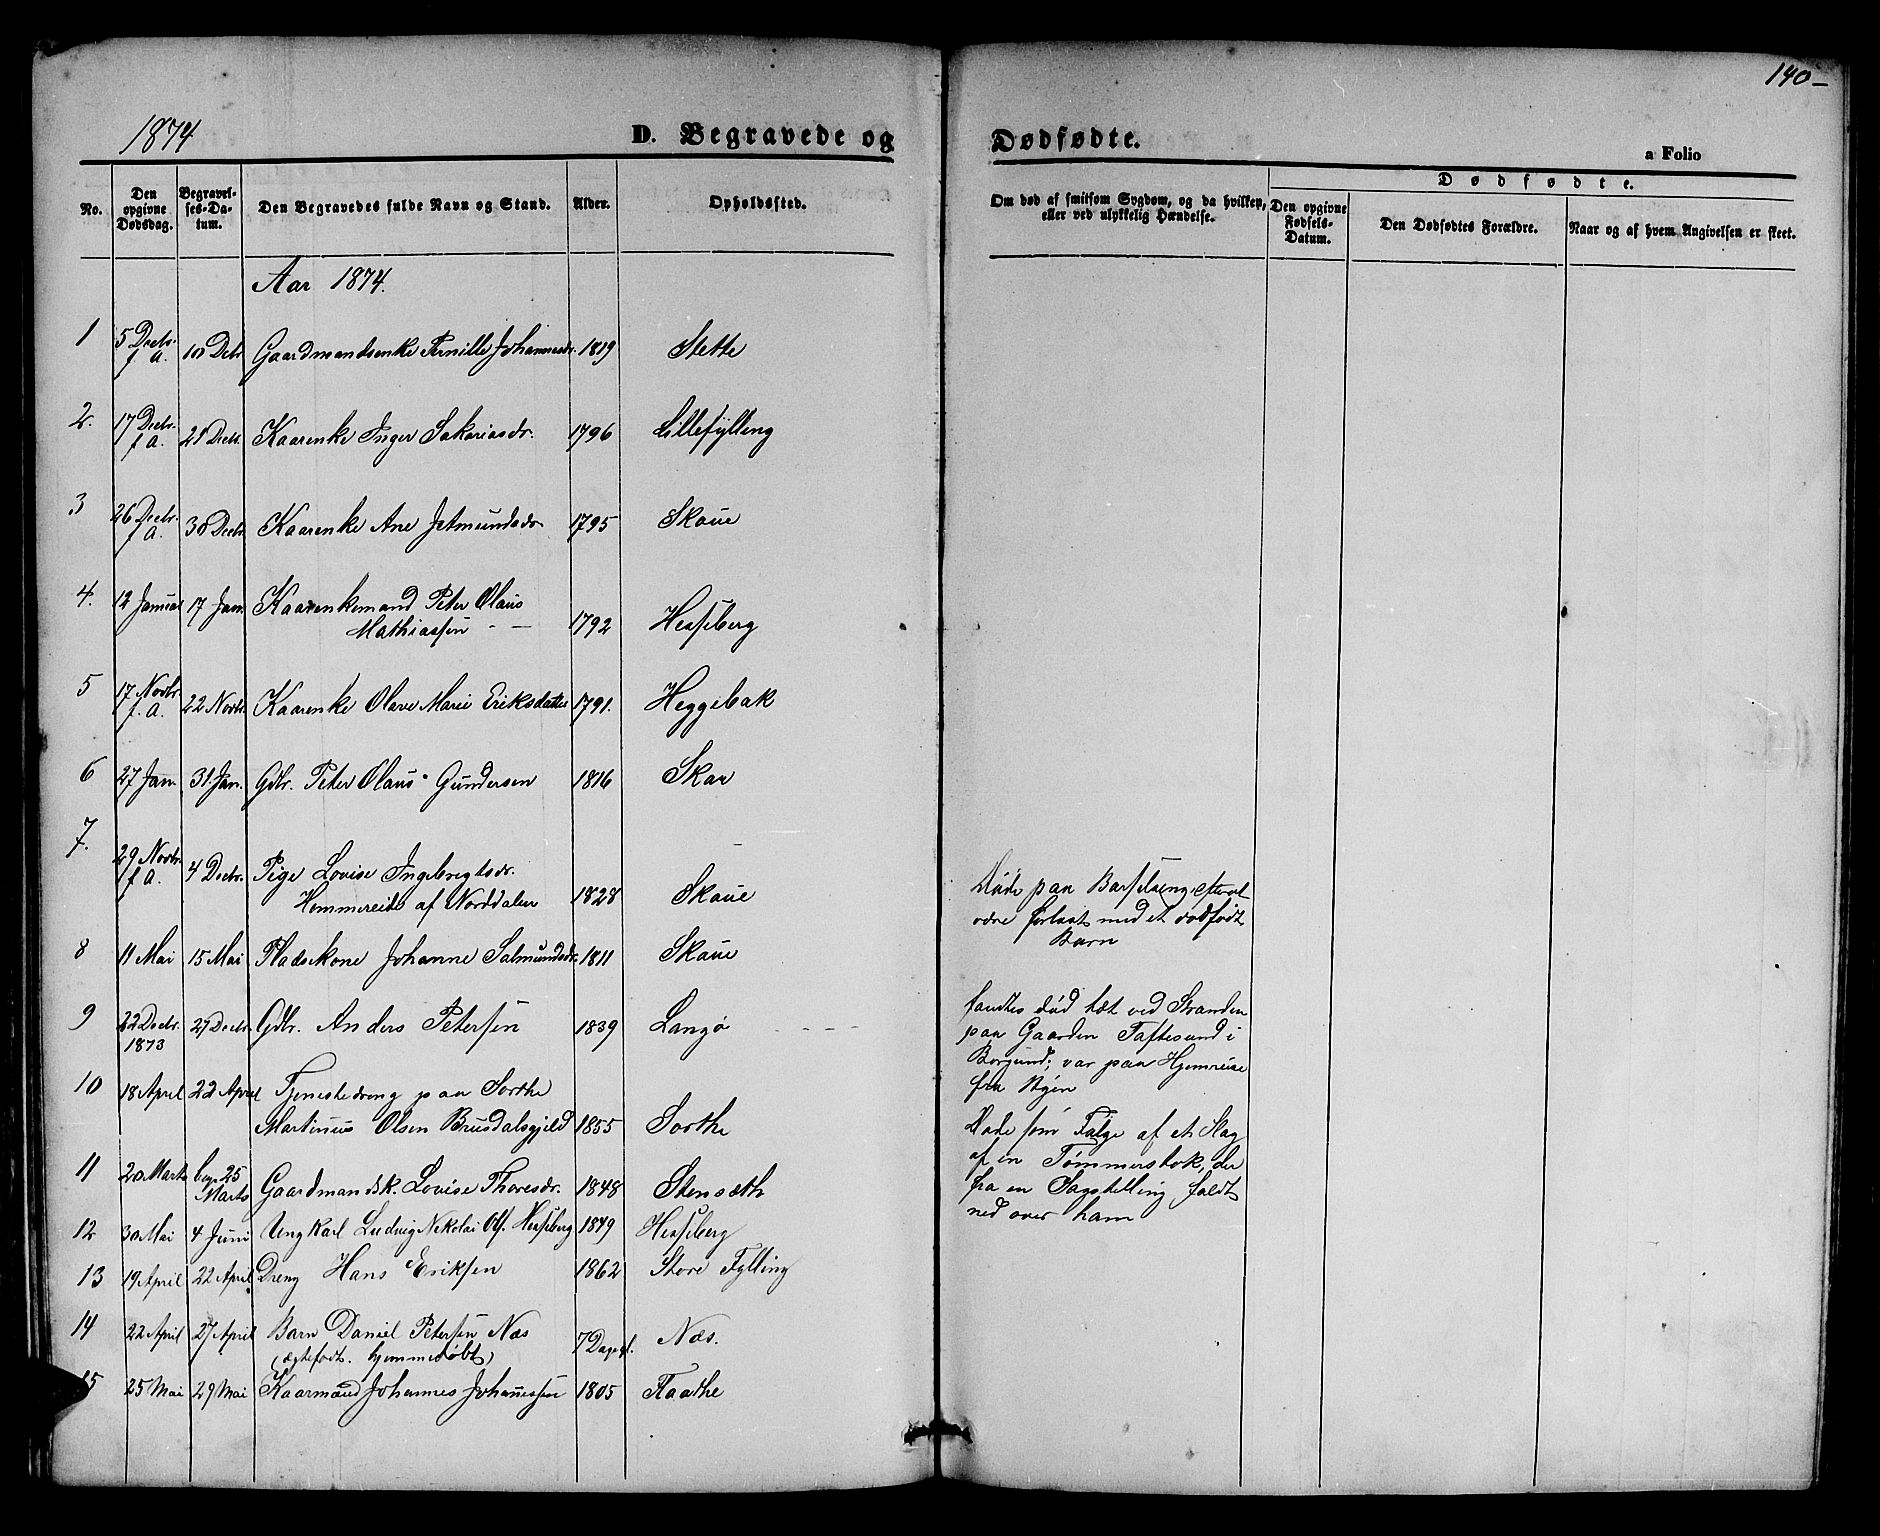 140-
1874
D. Begravede og
Dødfødte.
a Folio
No.
Den opgivne Dødsdag.
Begravel-ses-Da-tum.
Den Begravedes fulde Navn og Stand.
Alder.
Opholdssted.
Om død af smitsom Sygdom, og da hvilken, eller ved ulykkelig Hændelse.
Dødfødte.
Den opgivne Fødsels-Datum.
Den Dødfødtes Forældre.
Naar og af hvem Angivelsen er skeet.
Aar 1874.
1 5 Decbr. f. A. 10 Decbr Gaardmandsenke Pernille Johannesdr. 1819 Slette
2. 17 Decbr. f. A. 21 Decbr. Kaarenke Inger Sakariasdr. 1796 Lillefylling
3 26 Decbr. f. A. 30 Decbr. Kaarenke Ane Jetmundsdr. 1795 Skoue
4. 12 Januar 17 Jan. Kaarenkemand Peter Olaus
Mathiassen 1792 Hesseberg
5 17 Novbr. f. A. 22 Novbr. Kaarenke Olave Marie Eriksdatter 1791. Heggebak
6 27 Jan. 31. Jan. Gdbr. Peter Olaus Gundersen 1816 Skar
7. 29 Novbr. f. A. 4 Decbr. Pige Lovise Ingebregtsdr.
Hommereide af Norddalen 1828 Skoue
Døde paa Barselseng efter at
være forløst med et dødfødt
Barn
8 11 Mai 15 Mai Pladskone Johanne Salmundsdr. 1811 Skoue
9 22 Decbr. 1873 27 Decbr. Gdbr. Anders Petersen 1839 Langø
fandtes død tæt ved Stranden
paa Gaarden Taftesund i
Borgund; var paa Hjemreise
fra Byen
10 18 April 22 April Tjenestedreng paa Sorthe
Martinus Olsen Brusdalsgjeld 1855 Sorthe
Døde som Følge af et Slag
af en Tømmerstok, der
fra en Sagstelling faldt
ned over ham
11 20 Marts begr. 25 Marts Gaardmandsk. Lovise Thoresdr. 1848 Stensæth
12 30 Mai 4 Juni Ungkarl Ludvig Nikolai Ols. Hesseberg 1849 Hesseberg
13 19 April 22 April Dreng Hans Eriksen 1862 Store Fylling
14 22 April 27 April Barn Daniel Petersen Næs
(ægtefødt. hjemmedøbt) 7 Dage gl. Næs.
15 25 Mai 29 Mai Kaarmand Johannes Johannessen 1805 Flaathe